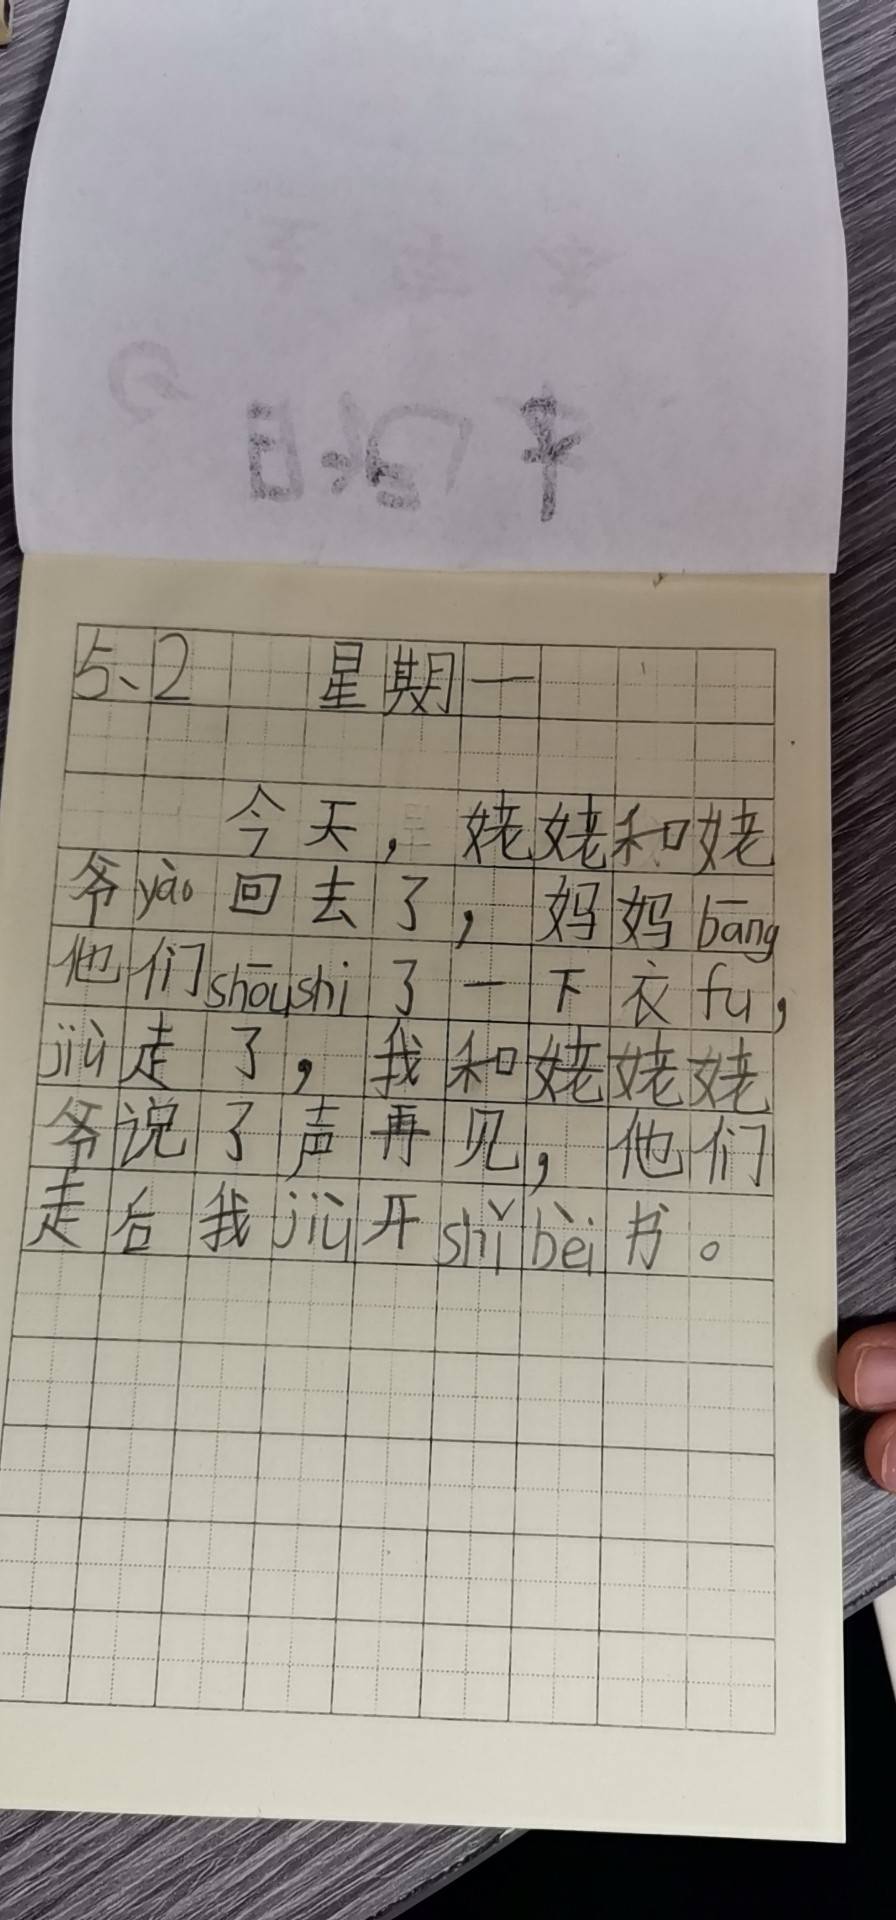 5、2 星期一
今天，姥姥和姥
爷yào回去了，妈妈bāng
他们shōushi了一下衣fu，
jiù走了，我和姥姥姥
爷说了声再见，他们
走后我jiù开shǐbèi书。